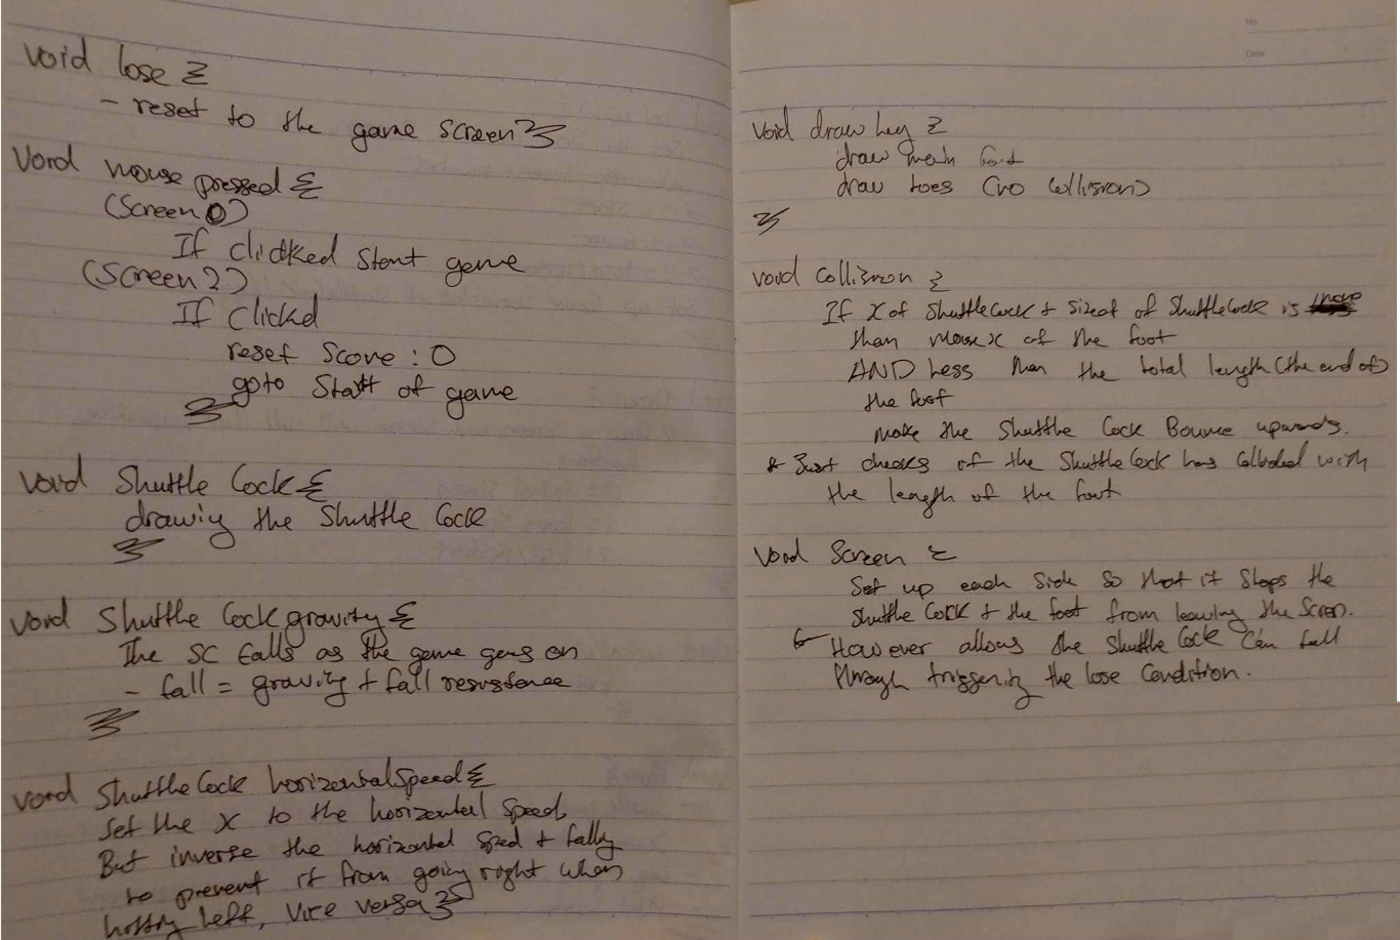 void lose {
- reset to the game screen }
void mouse pressed {
(Screen 0)
If clidked start game
(Screen 2)
If clicked
reset score : 0
goto start of game
}
void Shuttle Cock {
drawiy the Shuttle Cock
}
void Shuttle Cock gravity {
The SC falls as the game goes on
- fall = gravity + fall resistence
}
void ShuttleCock horizontalSpeed {
Set the x to the horizontal speed
But inverse the horizontal sped + fally
to prevent it from goiy right when
hitty left, vice versa }
No.
Date
void draw Leg {
draw main foot
draw toes (no collision)
}
void collision {
If x of ShuttleCock + sizeof of ShuttleCock is
than mouse x of the foot
AND Less than the total length (the end of)
the foot
make the Shuttle Cock Bounce upwards.
Just checks if the ShuttleCock has collided with
the length of the foot
void Screen {
Set up each side so that it stops the
Shuttle Cock + the foot from leaving the Screen.
However allows the Shuttle Cock can fall
through triggering the lose condition.